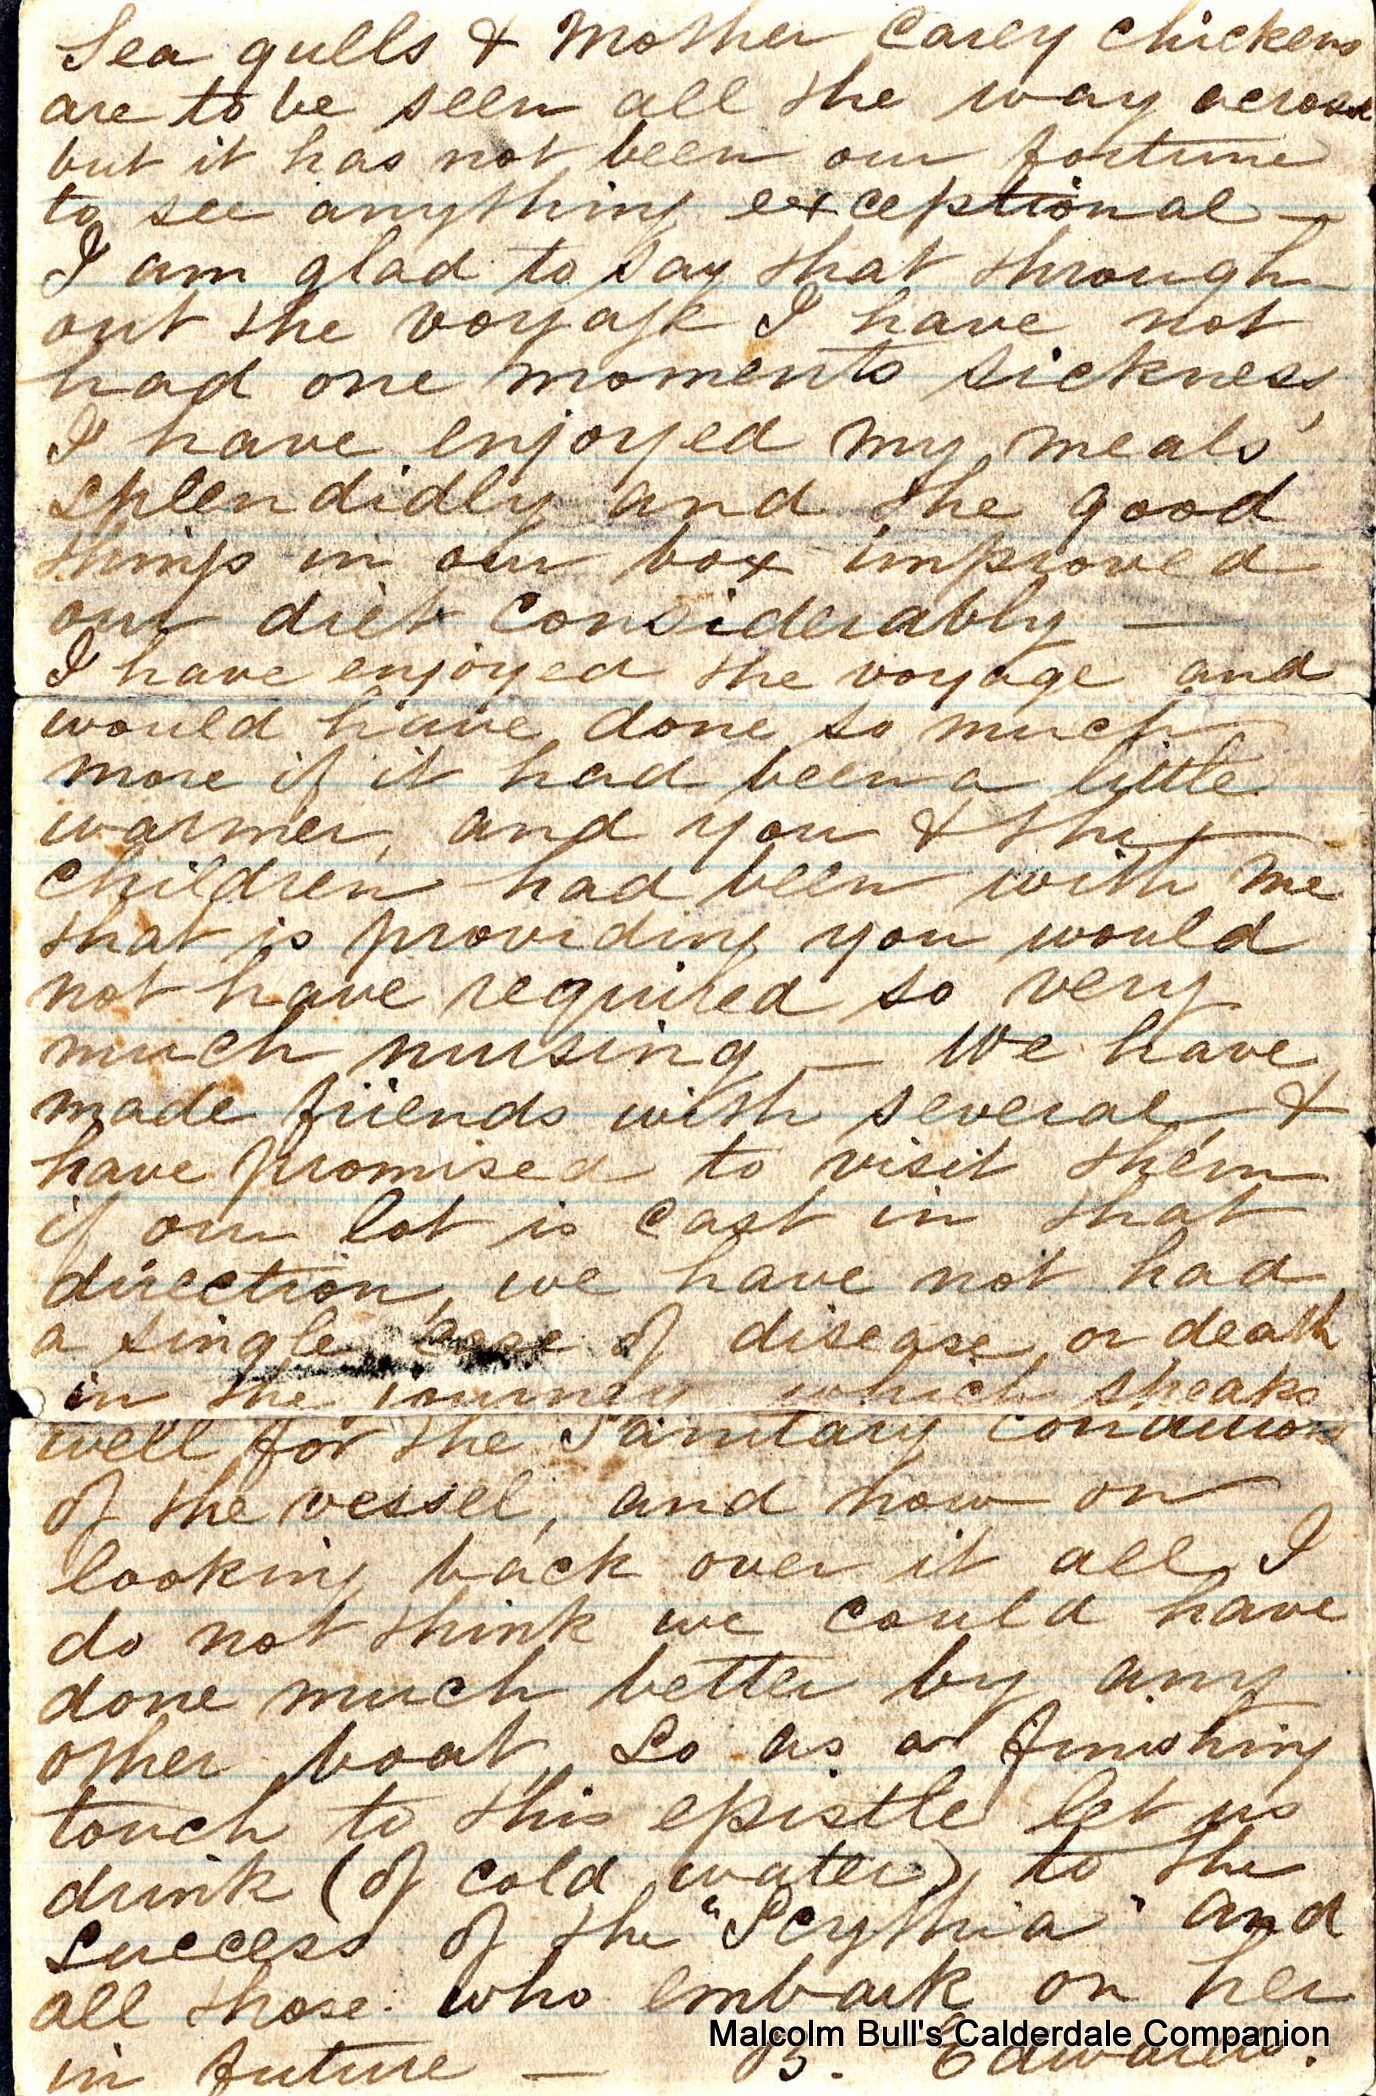 Sea gulls & Mother Carey chickens
are to be seen all the way across
but it has not been our fortune
to see anything exceptional —
I am glad to say that through-
out the voyage I have not
had one moments sickness,
I have enjoyed my meals
splendidly and the good
things in our box improved
our diet considerably —
I have enjoyed the voyage and
would have done so much
more if it had been a little
warmer, and you & the
children had been with me
that is providing you would
not have required so very
much nursing — We have
made friends with several &
have promised to visit them
if our lot is cast in that
direction, we have not had
a single case of disease or death
in the journey which speaks
well for the Sanitary conditions
of the vessel, and now on
looking back over it all I
do not think we could have
done much better by any
other boat, so as a finishing
touch to this epistle let us
drink (of cold water) to the
success of the "Scythia" and
all those who embark on her
in future — B. Edwards.
Malcolm Bull's Calderdale Companion